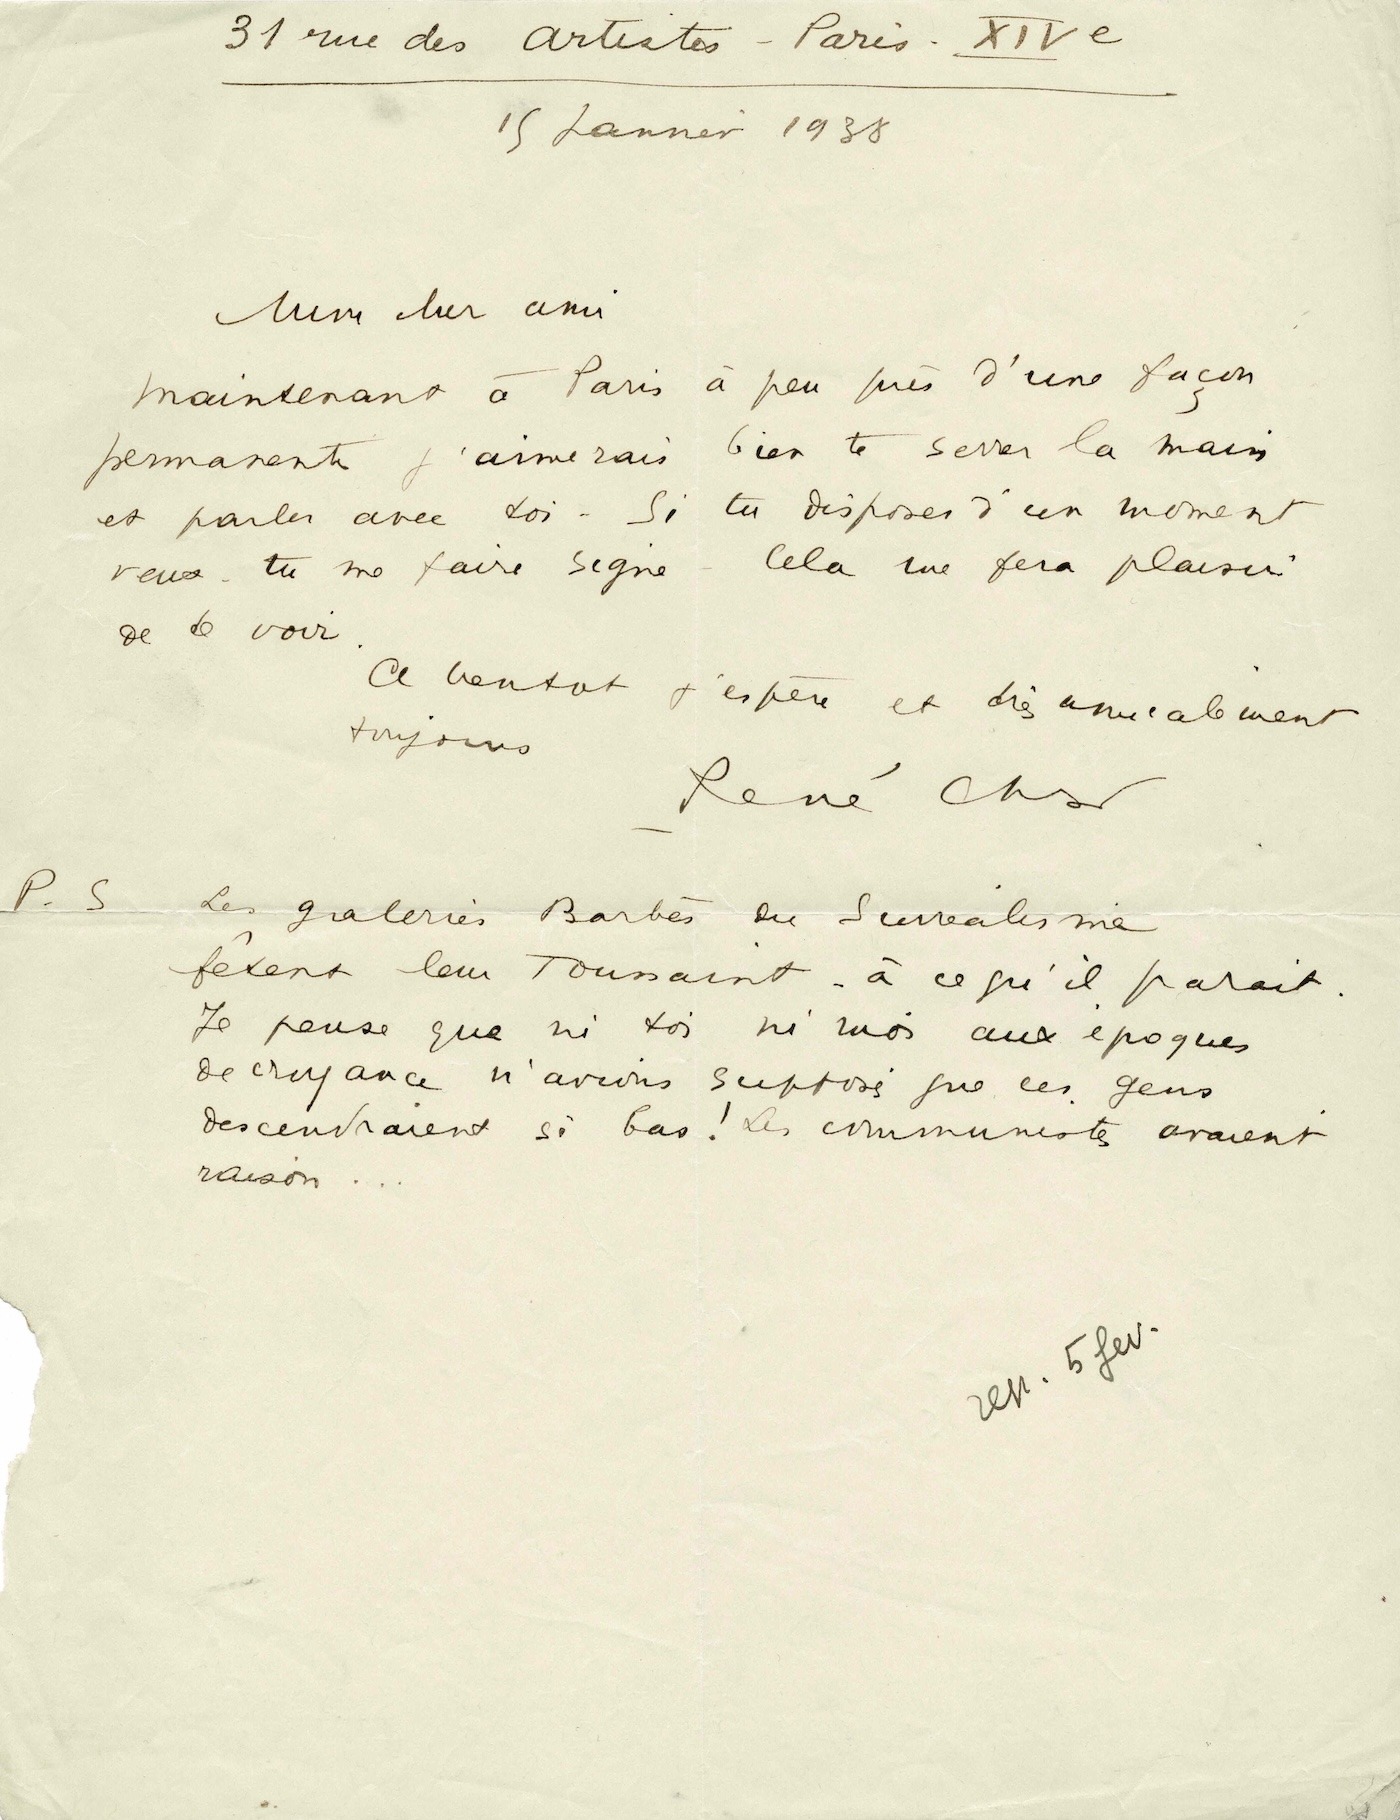 31 rue des Artistes - Paris - XIVe
15 Janvier 1938
Mon cher ami
Maintenant à Paris à peu près d'une façon
permanente j'aimerais bien te serrer la main
et parler avec toi - Si tu disposes d'un moment
veux-tu me faire signe - Cela me fera plaisir
de te voir.
A bientot j'espère et très amicalement
toujours
René Char
P. S Les galeries Barbès du Surréalisme
fêtent leur Toussaint - à ce qu'il parait.
Je pense que ni toi ni moi aux époques
de croyance n'avions supposé que ces gens
descendraient si bas! Les communistes avaient
raison ...
rep. 5 fev.